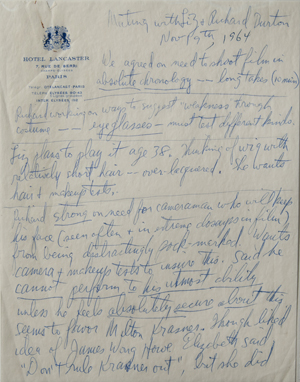 Meeting with Liz & Richard Burton
Nov 19th, 1964
HOTEL LANCASTER
7, RUE DE BERRI
PARIS
We agreed on need to shoot film in
absolute chronology — long takes (10 min)
Richard working on ways to suggest weakness through
costume — eyeglasses — must test different kinds.
Liz plans to play it age 38. Thinking of wig with
relatively short hair — over-bequined. She wants
hair & makeup tests.
Richard strong on need for cameraman who will keep
his face (seen often & in strong closeups in film)
from being distractingly pock-marked. Wants
camera & makeup tests to insure this. Said he
cannot perform to his utmost ability
unless he feels absolutely secure about this.
Seems to favor Milton Krasner. Though liked
idea of James Wong Howe. Elizabeth said
"Don't rule Krasner out", but she did